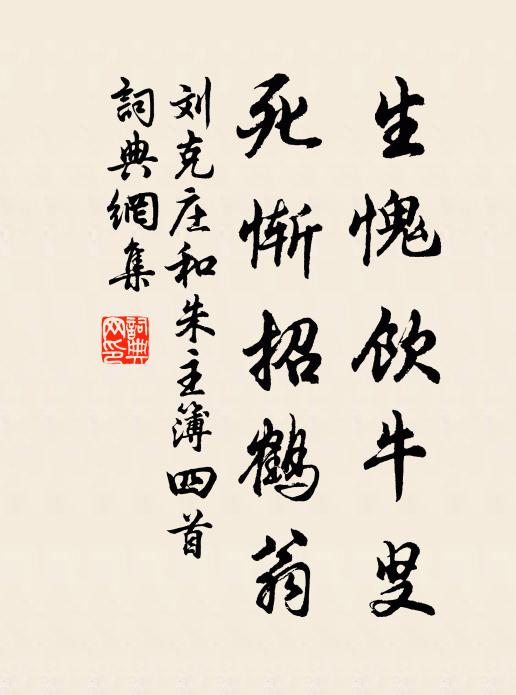 生愧饮牛叟
死惭招鹤翁
刘克庄和朱主簿四首
词典網集
詞典网印